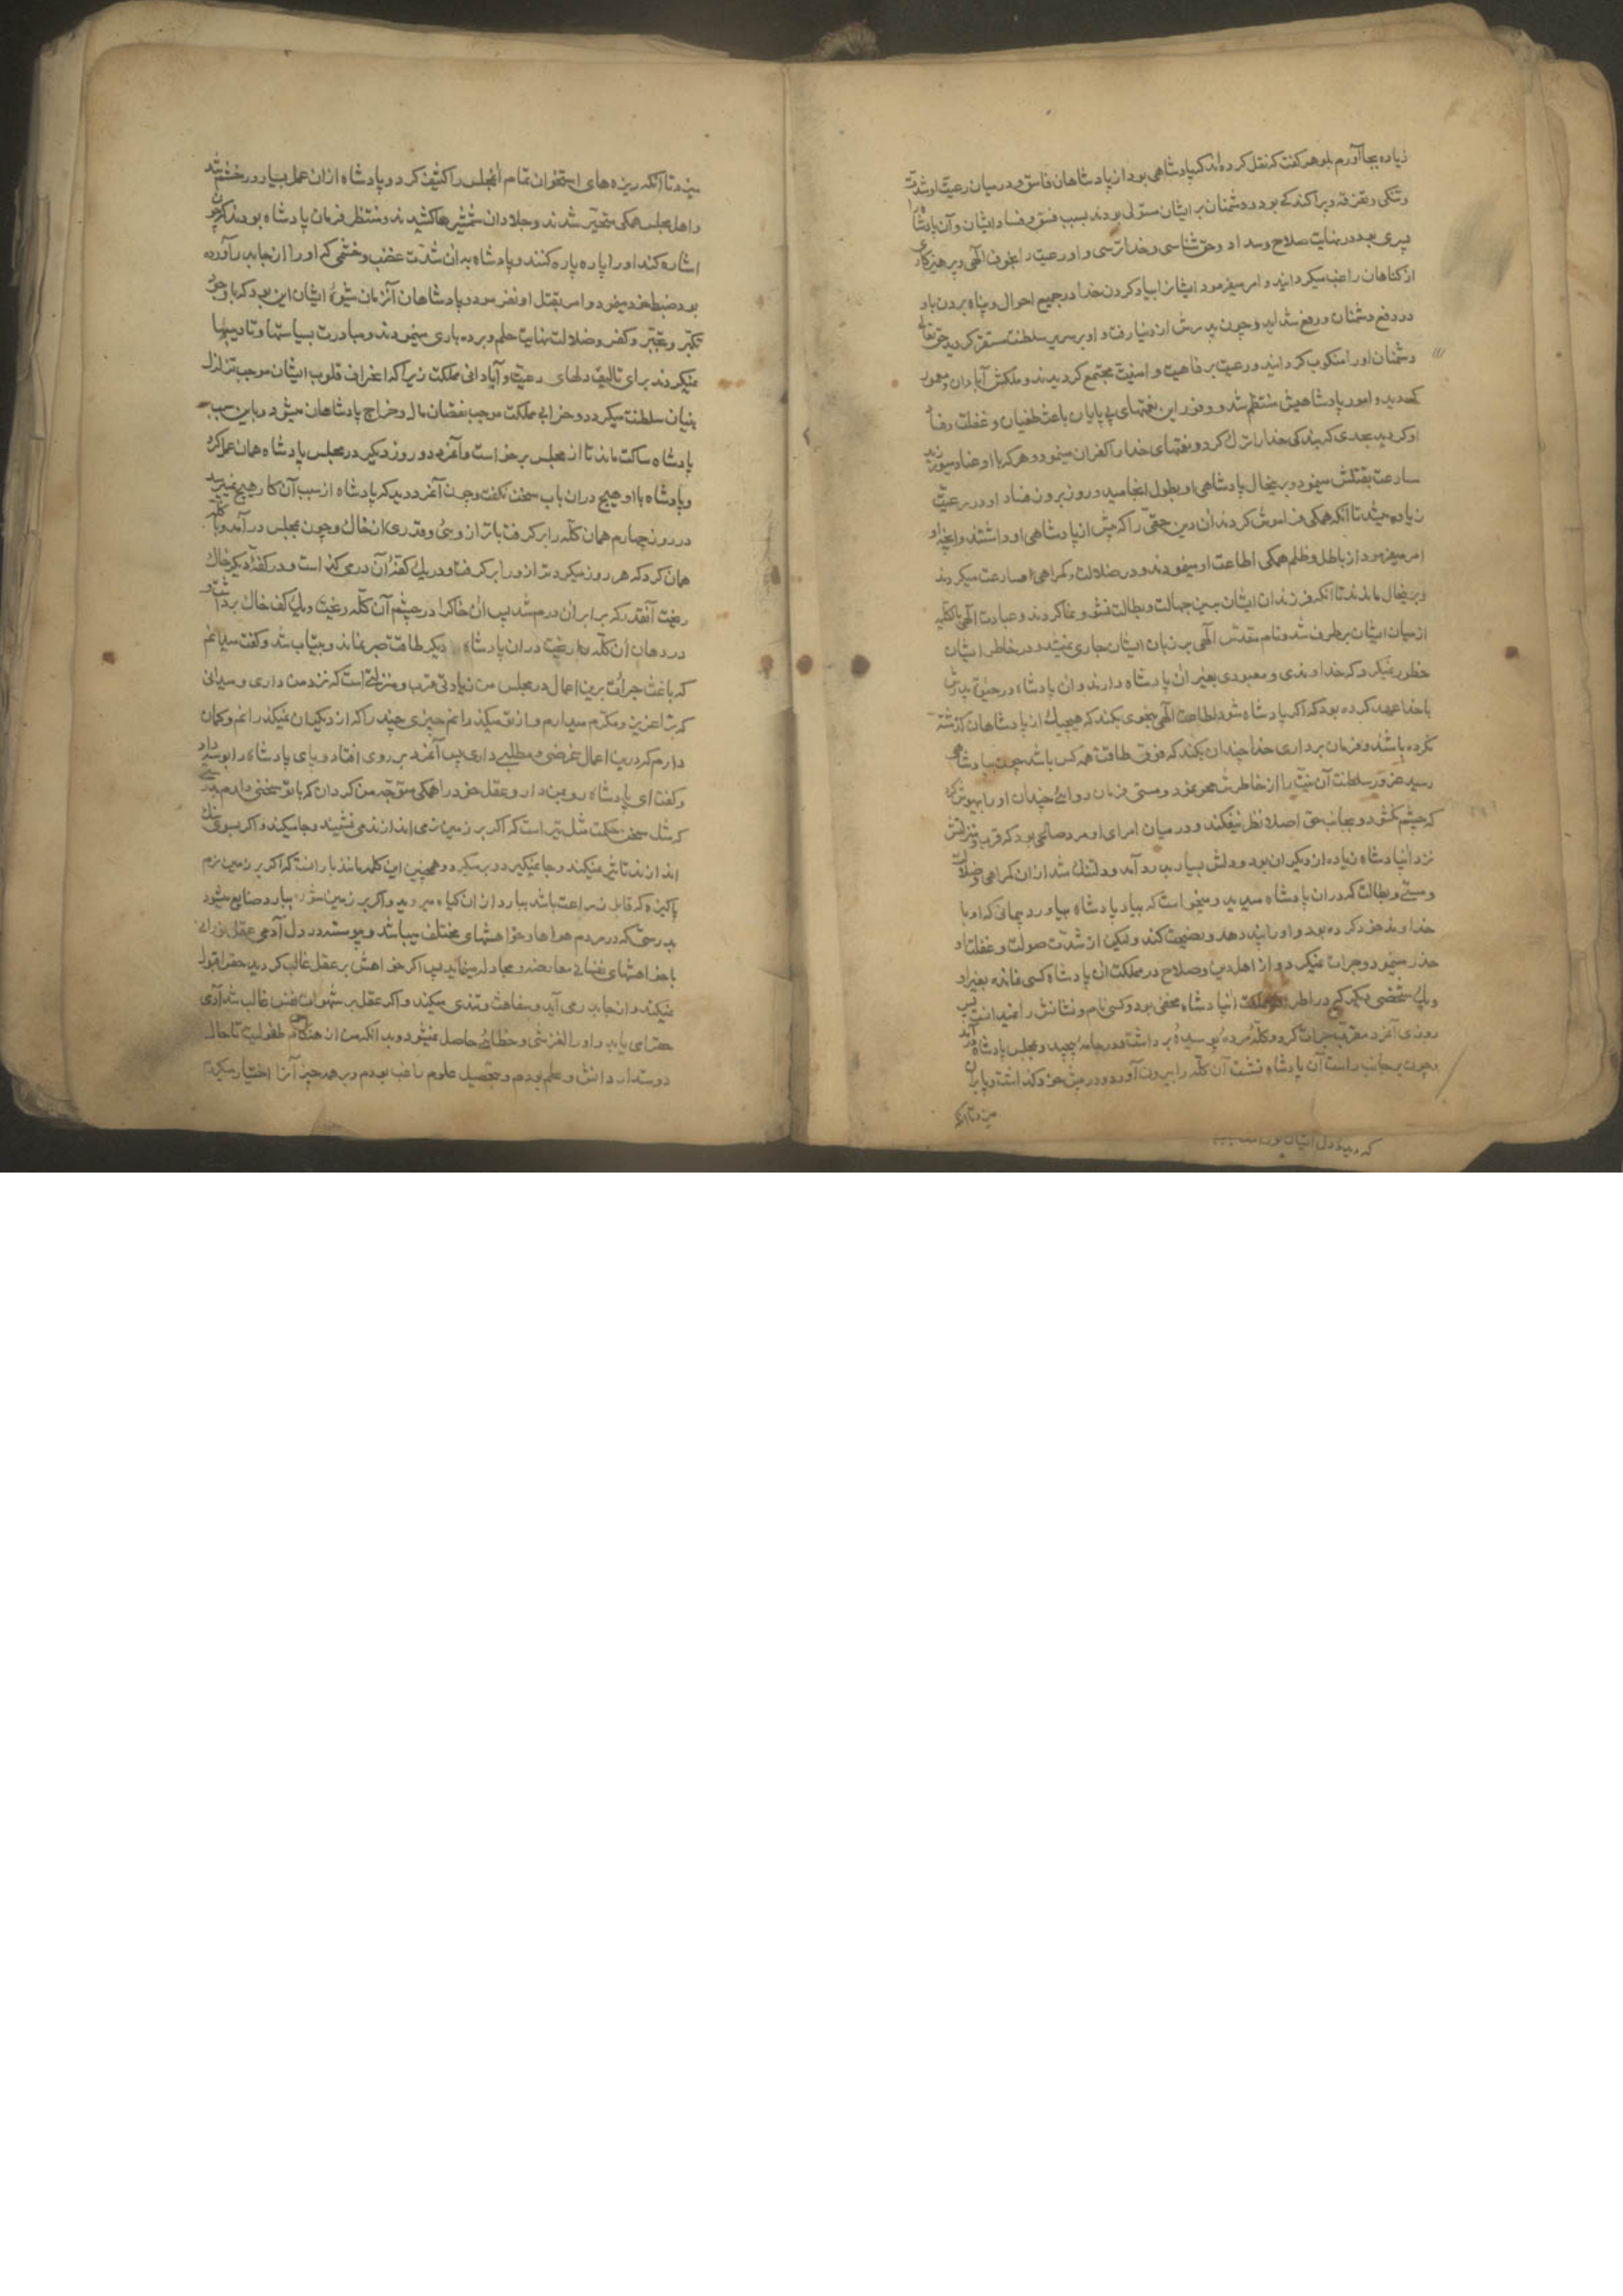 زیاده بجا آورم بلوهر گفت که نقل کرده‌اند که پادشاهی بود از پادشاهان فاسق و در میان رعیت او شدت
و تنگی و تفرقه و پراکندگی بود و دشمنان بر ایشان مستولی بودند بسبب فسق و فساد ایشان و آن پادشاه را
پسری بود در نهایت صلاح و سداد و حق شناسی و خدا ترسی و او رعیت را بخوف الهی و پرهیزکاری
از گناهان راغب میگردانید و امر میفرمود ایشانرا بیاد کردن خدا در جمیع احوال و پناه بردن باو
در دفع دشمنان و رفع شداید و چون پدرش از دنیا رفت و او بر سریر سلطنت مستقر گردید حق تعالی
دشمنان او را منکوب گردانید و رعیت بر فاهیت و امنیت مجتمع گردیدند و ملکش آبادان و معمور
گردید و امور پادشاهیش منتظم شد و وفور این نعمتهای بی پایان باعث طغیان و غفلت و فساد
او گردید بحدی که بندگی خدا را ترک کرد و نعمتهای خدا را کفران مینمود و هر که با او عناد میورزید
مسارعت بقتلش مینمود و بر ینحال پادشاهی او بطول انجامید و روز بروز فساد او در رعیت
زیاده میشد تا آنکه همگی فراموش کردند آن دین حقی را که پیش از پادشاهی او داشتند و آنچه او
امر میفرمود از باطل و ظلم همگی اطاعت او مینمودند و در ضلالت و گمراهی مسارعت میکردند
و بر ینحال ماندند تا آنکه فرزندان ایشان برین جهالت و بطالت نشو و نما کردند و عبادت الهی بالکلیه
از میان ایشان برطرف شد و نام مقدس الهی بر زبان ایشان جاری نمیشد و در خاطر ایشان
خطور نمیکرد که خداوندی و معبودی بغیر آن پادشاه دارند و آن پادشاه در حیوة پدرش
با خدا عهد کرده بود که اگر پادشاه شود اطاعت الهی بنحوی بکند که هیچیک از پادشاهان گذشته
نکرده باشند و فرمان برداری خدا چندان بکند که فوق طاقت همه کس باشد چون بپادشاهی
رسید غرور سلطنت آن نیت را از خاطرش محو نمود و مستی فرمان روائی چندان او را بیهوش کرد
که چشم نگشود و بجانب حق اصلا نظر نیفکند و در میان امرای او مرد صالحی بود که قرب و منزلتش
نزد آن پادشاه زیاده از دیگران بود و دلش بسیار بدرد آمد و دلتنگ شد از آن گمراهی و ضلالت
و مستی و بطالت که در آن پادشاه میدید و میخواست که بیاد پادشاه بیاورد پیمانی که او با
خداوند خود کرده بود و او را پند دهد و نصیحت کند و لیکن از شدت صولت و غفلت او
حذر مینمود و جرات نمیکرد و از اهل دین و صلاح در مملکت آن پادشاه کسی نمانده بغیر او
و یک شخصی دیگر که در اطراف مملکت آن پادشاه مخفی بود و کسی نام و نشانش را نمیدانست پس
روزی آنمرد مقرب جرات کرد و کلّه مرده پوسیده برداشت و در جامه پیچید و بمجلس پادشاه در آمد
و چون بر جانب راست آن پادشاه نشست آن کلّه را بیرون آورد و در پیش خود گذاشت و پا بران
میزد تا آنکه
میزد تا آنکه ریزه های استخوان تمام آن مجلس را کثیف کرد و پادشاه از آن عمل بسیار در خشم شد
و اهل مجلس همگی متحیر شدند و جلادان شمشیرها کشیدند و منتظر فرمان پادشاه بودند که چون
اشاره کند او را پاره پاره کنند و پادشاه بدان شدت غضب و خشمی که او را از آن جا بدر آورده
بود ضبط خود میفرمود و امر بقتل او نفرمود و پادشاهان آنزمان شیوه ایشان این بود که با وجود
تکبر و تجبر و کفر و ضلالت نهایت حلم و بردباری مینمودند و مبادرت بسیاستها و تادیبها
نمیکردند برای تالیف دلهای رعیت و آبادانی مملکت زیرا که انحراف قلوب ایشان موجب تزلزل
بنیان سلطنت میگردد و خرابی مملکت موجب نقصان مال و خراج پادشاهان میشود باین سبب
پادشاه ساکت ماند تا از مجلس برخواست و آنمرد دو روز دیگر در مجلس پادشاه همان عمل کرد
و پادشاه با او هیچ در آن باب سخن نگفت و چون آنمرد دید که پادشاه از سبب آن کار هیچ نمیپرسد
در روز چهارم همان کلّه را برگرفت با ترازوئی و قدری از خاک و چون بمجلس در آمد و با کلّه
همان کرد که هر روز میکرد ترازو را برگرفت و در یک کفّه آن درمی گذاشت و در کفّه دیگر خاک
ریخت آنقدر که برابر آن درم شد پس آن خاکرا در چشم آن کلّه ریخت و یک کف خاک برداشت و
در دهان آن کلّه ریخت در آن پادشاه دیگر طاقت صبر نماند و بیتاب شد و گفت میدانم
که باعث جرأت برین اعمال در مجلس من زیادتی قرب و منزلتی است که نزد من داری و میدانی
که ترا عزیز و مکرم میدارم و از تو میگذرانم چیزی چند را که از دیگران نمیگذرانم و گمان
دارم که درین اعمال غرضی و مطلبی داری پس آنمرد بر روی افتاد و پای پادشاه را بوسه داد
و گفت ای پادشاه رو بمن دار و عقل خود را همگی متوجه من گردان که با تو سخنی دارم بدرستی
که مثل سخن حکمت مثل تیر است که اگر بر زمین نرمی اندازند می نشیند و جا میکند و اگر بسوی سنگ
اندازند تاثیر نمیکند و جا نمیگیرد و برمیگردد و همچنین این کلمه مانند بارانست که اگر بر زمین نرم
پاکیزه که قابل زراعت باشد ببارد از آن گیاه میروید و اگر بر زمین شوره ببارد ضایع میشود
بدرستی که در مردم هواها و خواهشهای مختلف میباشد و پیوسته در دل آدمی عقل نورانی
با خواهشهای نفسانی معارضه و مجادله مینماید پس اگر خواهش بر عقل غالب گردید حق را قبول
نمیکند و از جا بدر می آید و سفاهت و تندی میکند و اگر عقل بر شهوات نفس غالب شد آدمی
حق را می یابد و او را لغزشی و خطائی حاصل نمیشود و بدانکه من از هنگام طفولیت تا حال
دوستدار دانش و علم بودم و بتحصیل علوم راغب بودم و بر همه چیز آنرا اختیار میکردم